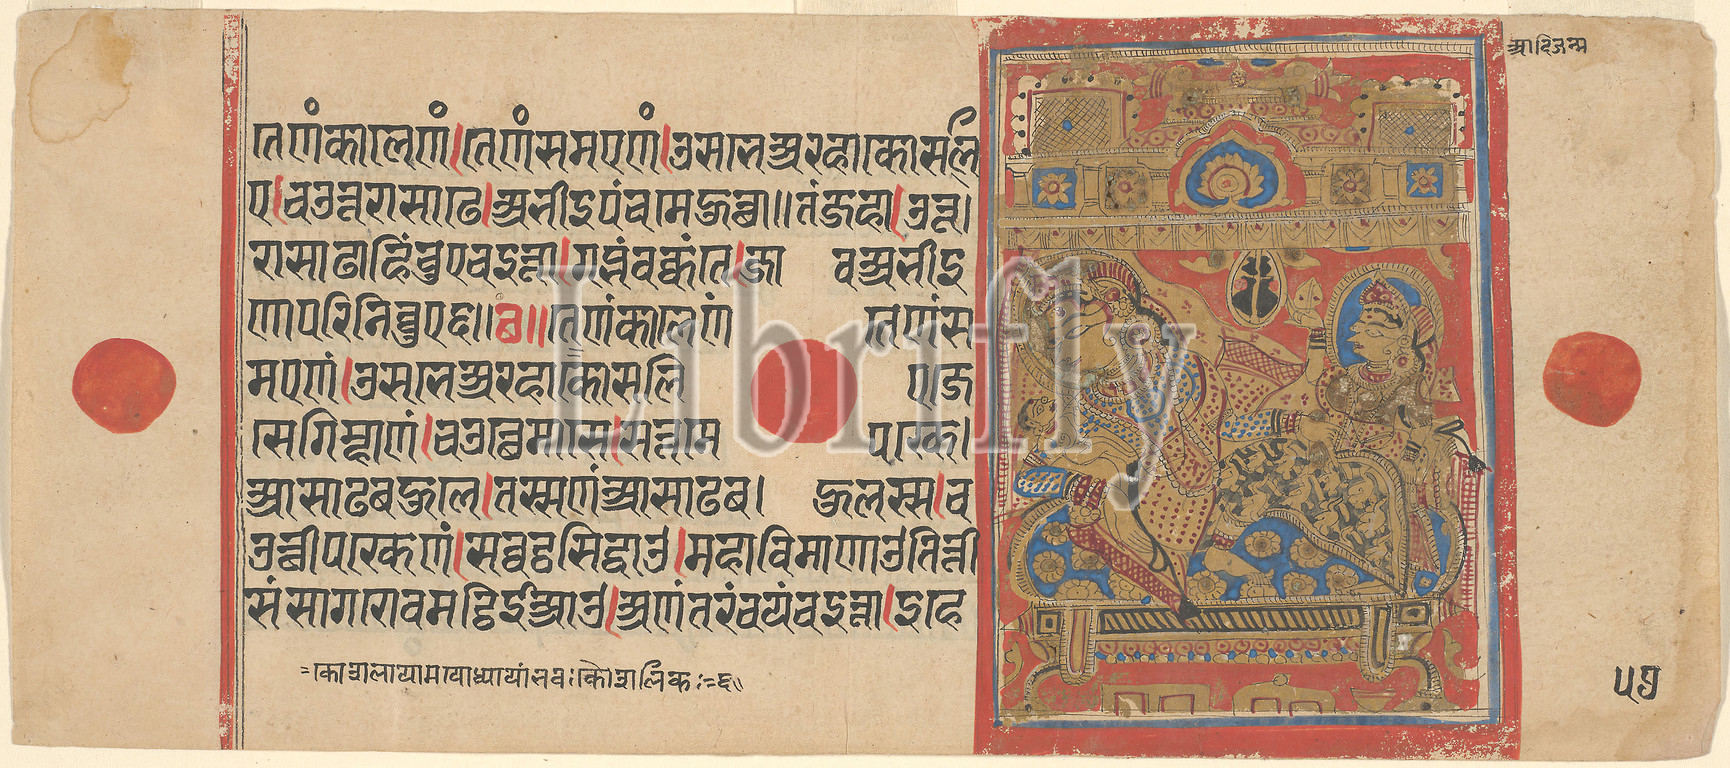 आदिजन्म
तेणं कालेणं तेणं समएणं उसभेअरहाकोसलि
ए।चउउत्तरासाढे।अभीइपंचमेहुत्था॥तंजहा।उत्त।
रासाढाहिंचुएचइत्ता।गब्भंवक्कंते।जा वअभीइ
णापरिनिव्वुएछ॥ब॥तेणंकालेणं तेणंस
मएणं।उसभेअरहाकोसलि एजे
सेगिम्हाणं।चउत्थेमासे।सत्तमे पक्खे।
आसाढबहुले।तस्सणंआसाढब। हुलस्स।च
उत्थीपक्खेणं।सव्वट्ठसिद्धाउ।महाविमाणाउतित्ती
संसागरोवमट्ठिईआउ।अणंतरंचयंचइत्ता।इहे
कोशलायामयोध्यायां भवः कौशलिकः ६
५७
Librifly